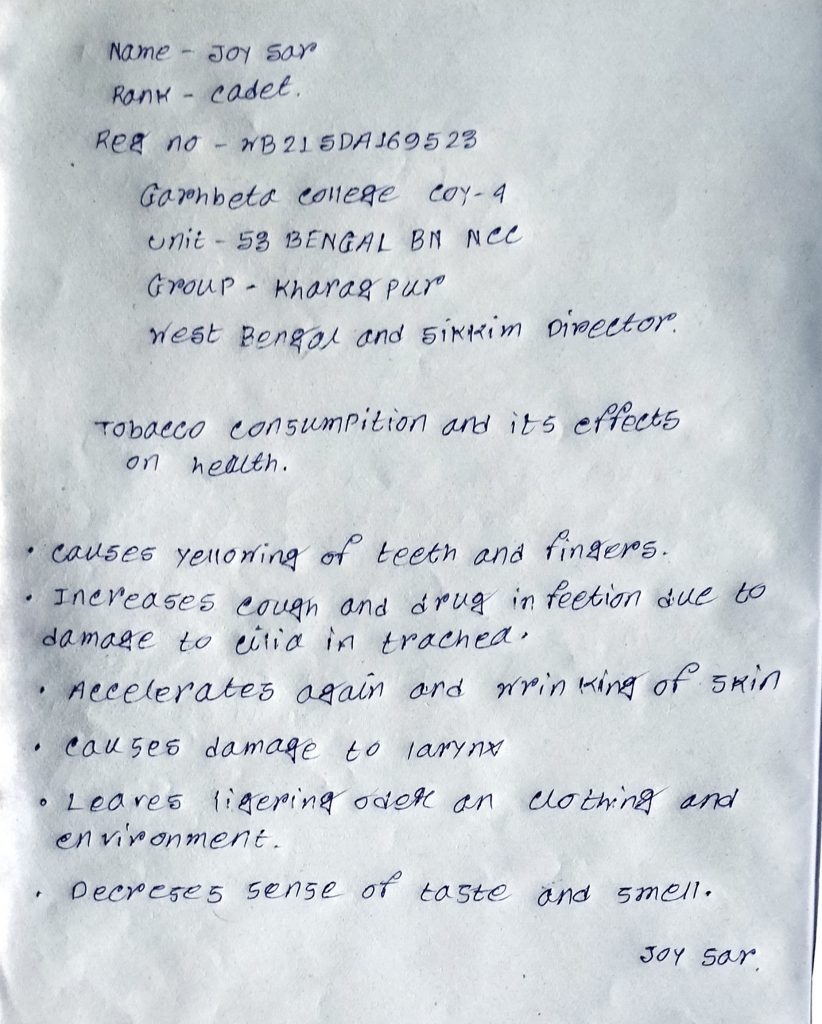 Name - JOY Sar
Rank - cadet.
Reg no - WB21SDA169523
Garhbeta college coy-4
unit - 53 BENGAL BN NCC
Group - Kharagpur
West Bengal and Sikkim Director.
Tobacco consumpition and its effects
on health.
• causes yellowing of teeth and fingers.
• Increases cough and drug infection due to
damage to cilia in trachea.
• Accelerates again and wrinking of skin
• causes damage to larynx
• Leaves ligering on clothing and
environment.
• Decreses sense of taste and smell.
JOY Sar.